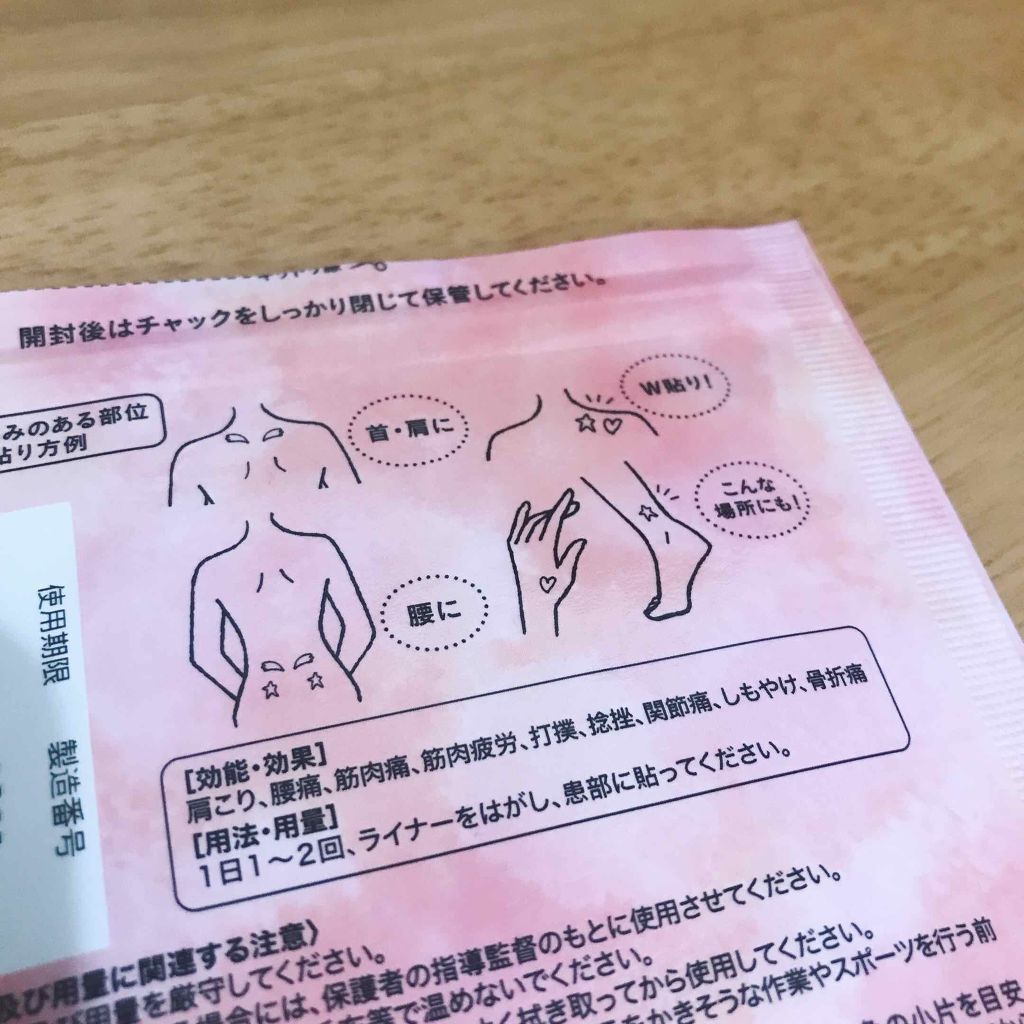 開封後はチャックをしっかり閉じて保管してください。
みのある部位
貼り方例
首・肩に
W貼り！
こんな
場所にも！
腰に
使用期限
製造番号
[効能・効果]
肩こり、腰痛、筋肉痛、筋肉疲労、打撲、捻挫、関節痛、しもやけ、骨折痛
[用法・用量]
1日1～2回、ライナーをはがし、患部に貼ってください。
及び用量に関連する注意〉
び用量を厳守してください。
場合には、保護者の指導監督のもとに使用させてください。
等で温めないでください。
拭き取ってから使用してください。
をかきそうな作業やスポーツを行う前
の小片を目安